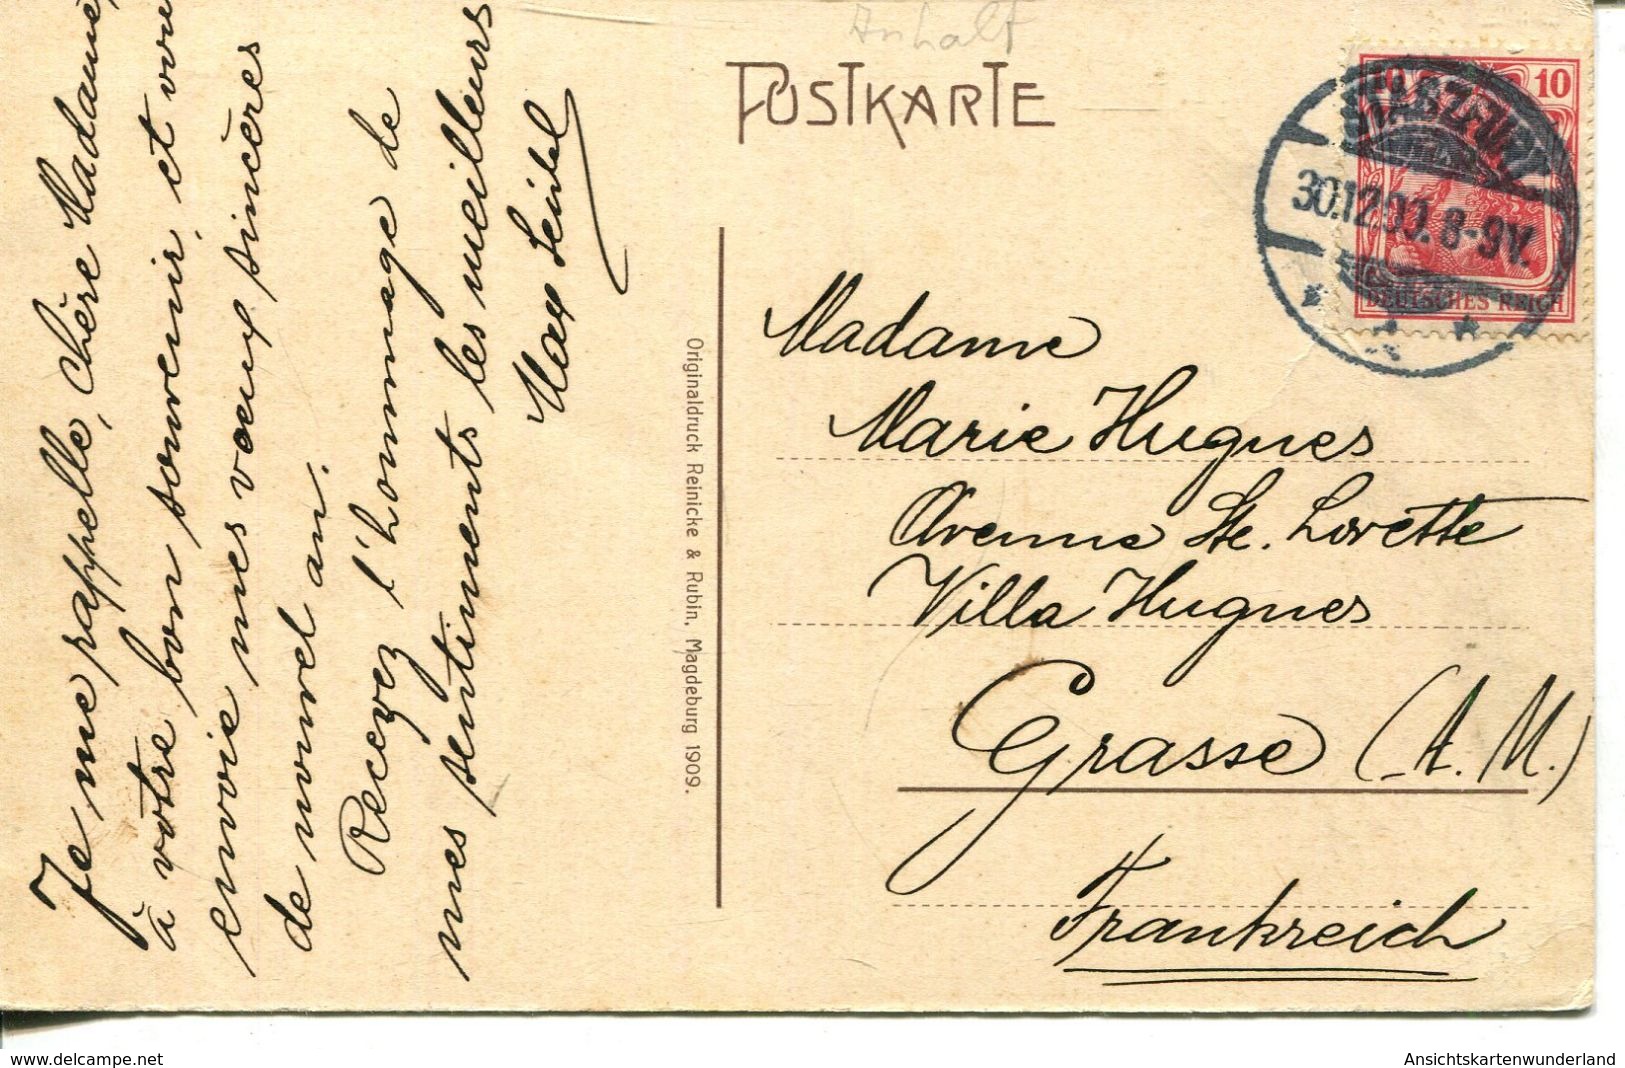 Anhalt
POSTKARTE
10
10
STASZFURT
30.12.09. 8-9V.
DEUTSCHES REICH
Je me rappelle, chère Madame,
à votre bon souvenir, et vous
envoie mes vœux sincères
de nouvel an.
Recevez l'hommage de
mes sentiments les meilleurs
Max Seibel
Originaldruck Reinicke & Rubin, Magdeburg 1909.
Madame
Marie Hugues
Avenue Ste. Lorette
Villa Hugues
Grasse (A. M.)
Frankreich
www.delcampe.net
Ansichtskartenwunderland